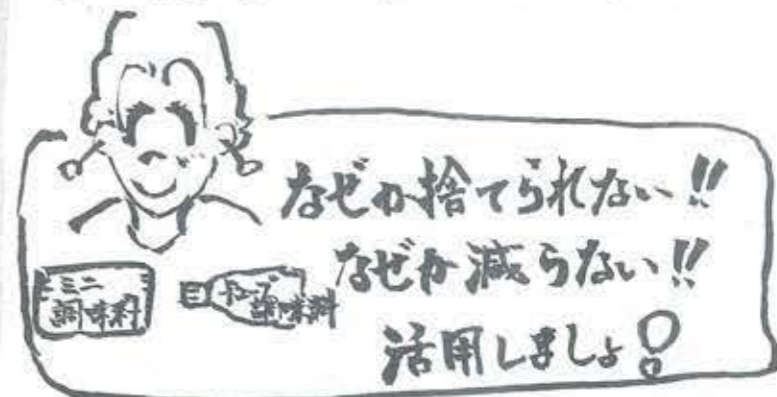 なぜか捨てられない!!
なぜか減らない!!
活用しましょ!
ミニ
調味料
チューブ
調味料